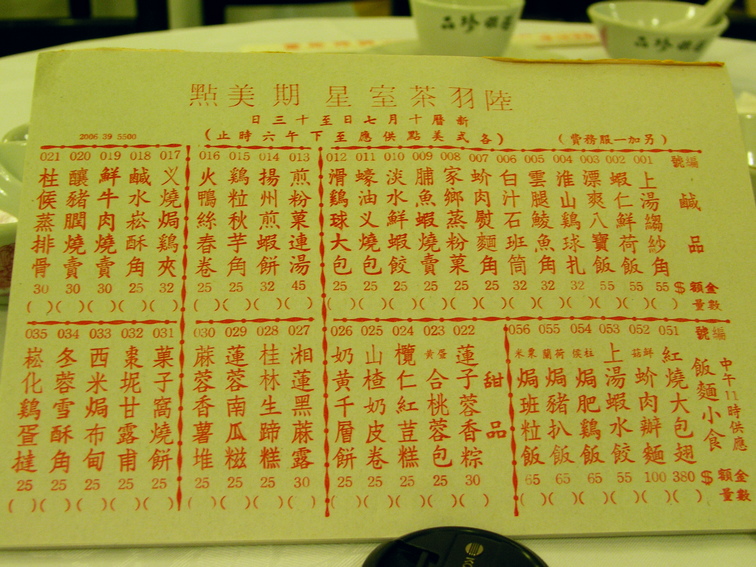 陸羽茶室星期美點
新曆十月七日至十三日
(另加一服務費)
(各式美點供應至下午六時止)
2006 39 5500
編號 鹹品 金額$ 數量
001 上湯縐紗角 55
002 蝦仁鮮荷飯 55
003 漂爽八寶飯 55
004 淮山雞球扎 32
005 雲腿鯪魚角 32
006 白汁石班筒 25
007 蚧肉熨麵角 25
008 家鄉蒸粉菓 25
009 脯魚蝦燒賣 25
010 淡水鮮蝦餃 25
011 蠔油义燒包 25
012 滑鷄球大包 25
013 煎粉菓連湯 45
014 揚州煎蝦餅 32
015 鷄粒秋芋角 25
016 火鴨絲春卷 25
017 义燒焗鷄夾 32
018 鹹水崧酥角 25
019 鮮牛肉燒賣 30
020 釀豬膶燒賣 30
021 柱侯蒸排骨 30
編號 飯麵小食 中午11時供應 金額$ 數量
051 紅燒大包翅 380
052 鮮菇蚧肉辦麵 100
053 上湯蝦水餃 55
054 柱侯焗肥鷄飯 65
055 荷蘭焗豬扒飯 65
056 粟米焗班粒飯 65
甜品
022 蓮子蓉香粽 30
023 蛋黃合桃蓉包 25
024 欖仁紅荳糕 25
025 山楂奶皮卷 25
026 奶黃千層餅 25
027 湘蓮黑蔴露 30
028 桂林生蹄糕 25
029 蓮蓉南瓜糍 25
030 蔴蓉香薯堆 25
031 菓子窩燒餅 25
032 棗坭甘露甫 25
033 西米焗布甸 25
034 冬蓉雪酥角 25
035 崧化鷄蛋撻 25